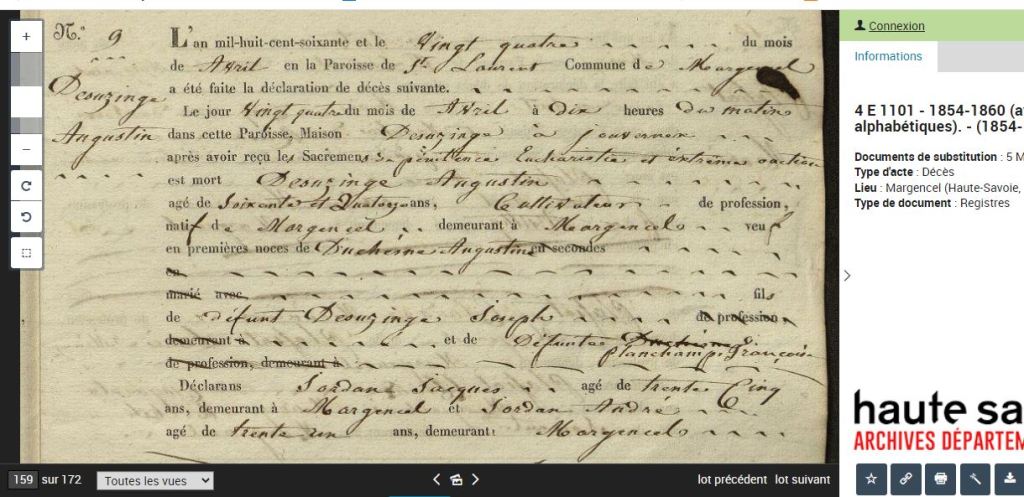 N.º 9
L'an mil-huit-cent-soixante et le Vingt quatre du mois
de Avril en la Paroisse de St Laurent Commune de Margencel
a été faite la déclaration de décès suivante.
Desuzinge
Augustin
Le jour Vingt quatre du mois de Avril à dix heures du matin
dans cette Paroisse, Maison Desuzinge à Jouvernex
après avoir reçu les Sacremens de pénitence Eucharistie et extrême onction
est mort Desuzinge Augustin
agé de Soixante et Quatorze ans, Cultivateur de profession,
natif de Margencel demeurant à Margencel veuf
en premières noces de Duchesne Augustine en secondes
en
marié avec fils
de défunt Desuzinge Joseph de profession
demeurant à et de Défunte Duchesne
Planchamp Françoise
de profession, demeurant à
Déclarans Jordan Jacques agé de trente Cinq
ans, demeurant à Margencel et Jordan André
agé de trente un ans, demeurant Margencel
159 sur 172
Toutes les vues
lot précédent lot suivant
Connexion
Informations
4 E 1101 - 1854-1860 (a
alphabétiques). - (1854-
Documents de substitution : 5 M
Type d'acte : Décès
Lieu : Margencel (Haute-Savoie,
Type de document : Registres
haute sa
ARCHIVES DÉPARTEM